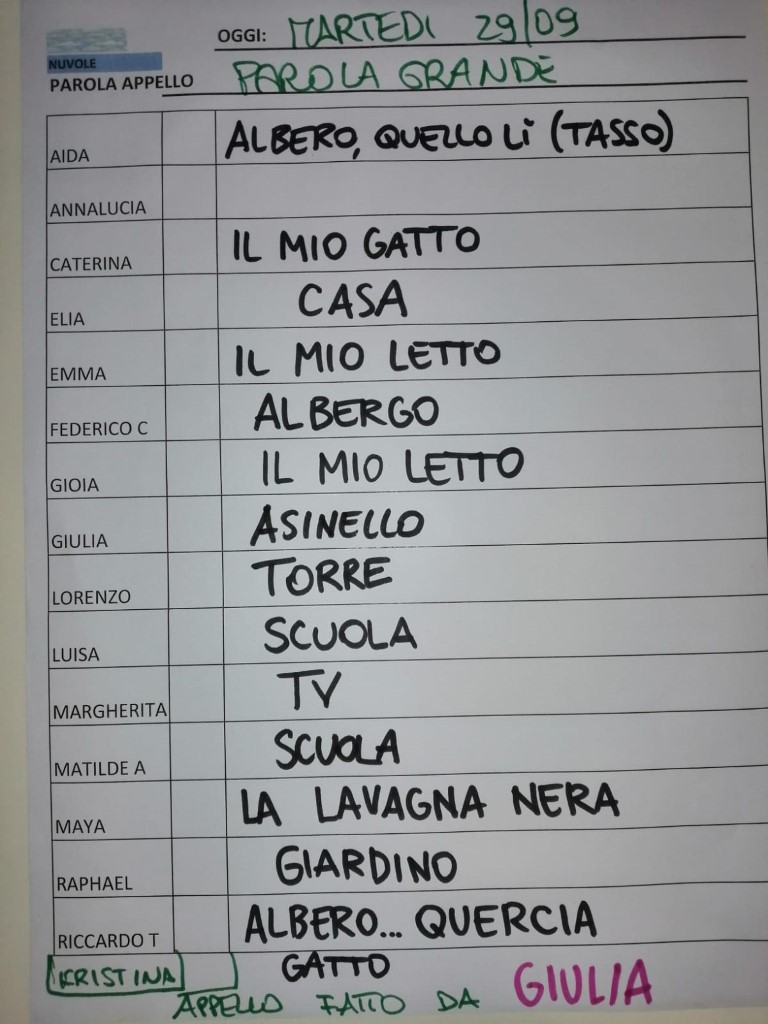 OGGI: MARTEDI 29/09
NUVOLE
PAROLA APPELLO PAROLA GRANDE
AIDA ALBERO, QUELLO LÌ (TASSO)
ANNALUCIA
CATERINA IL MIO GATTO
ELIA CASA
EMMA IL MIO LETTO
FEDERICO C ALBERGO
GIOIA IL MIO LETTO
GIULIA ASINELLO
LORENZO TORRE
LUISA SCUOLA
MARGHERITA TV
MATILDE A SCUOLA
MAYA LA LAVAGNA NERA
RAPHAEL GIARDINO
RICCARDO T ALBERO... QUERCIA
KRISTINA GATTO
APPELLO FATTO DA GIULIA